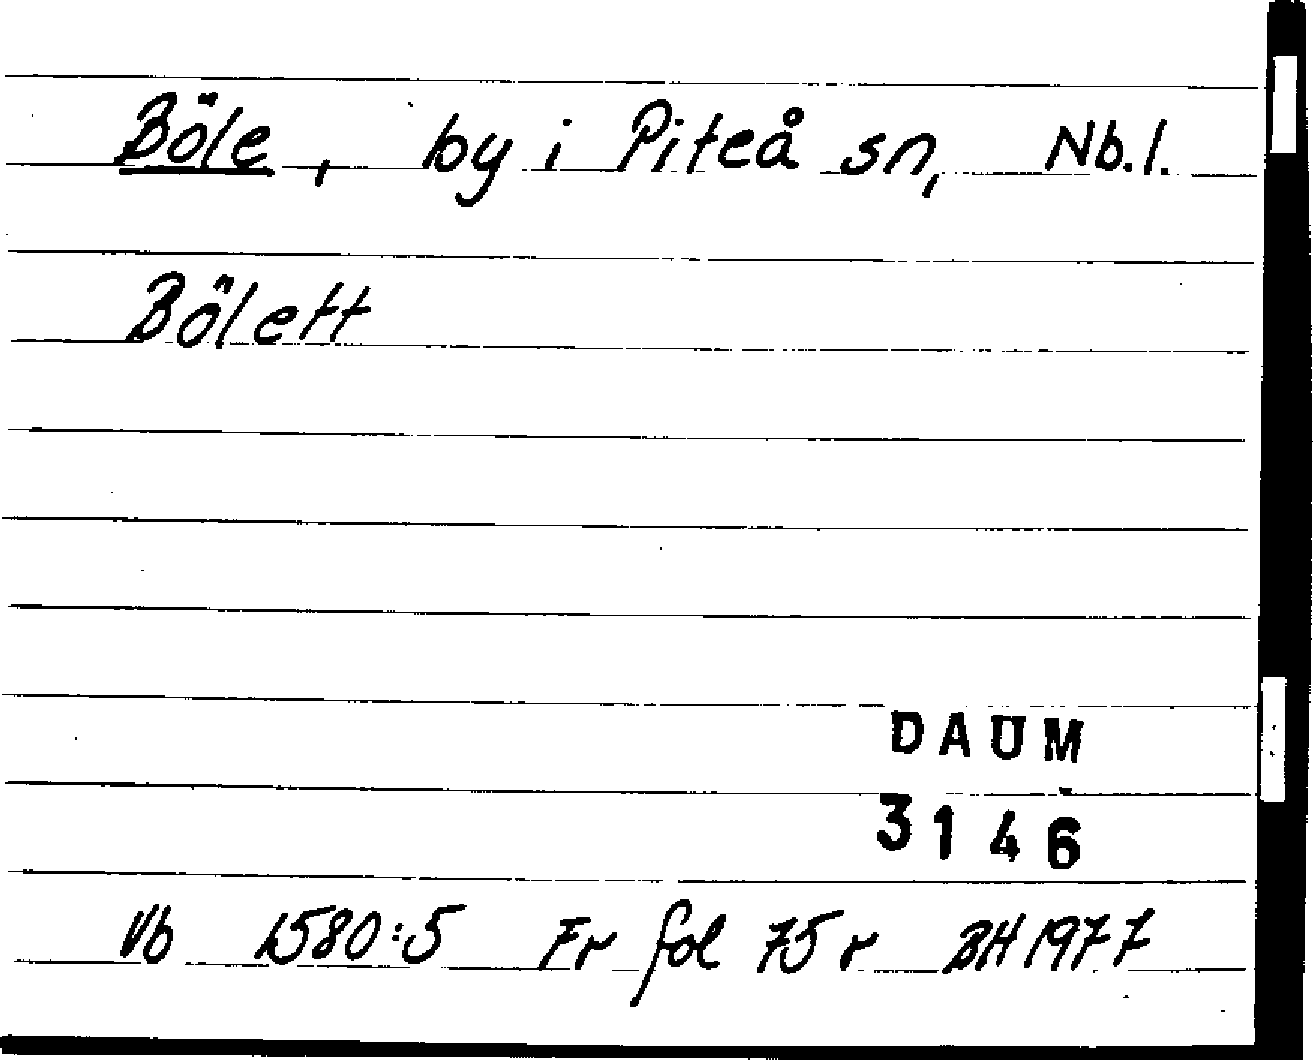 Böle, by i Piteå sn, Nb.l.
Bölett
DAUM
3146
Vb 1580:5 Fr fol 75 r BH 1977